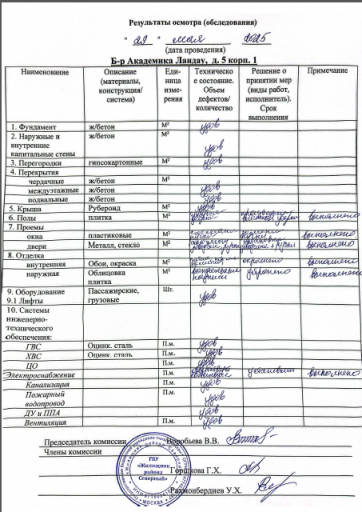 Результаты осмотра (обследования)
"29" мая 2025
(дата проведения)
Б-р Академика Ландау, д. 5 корп. 1
Наименование Описание (материалы, конструкция/ система) Еди- ница изме- рения Техническо е состояние. Объем дефектов/ количество Решение о принятии мер (виды работ, исполнитель). Срок выполнения Примечание
1. Фундамент ж/бетон М³ удов
2. Наружные и внутренние капитальные стены ж/бетон М³ удов
3. Перегородки гипсокартонные М² удов
4. Перекрытия
чердачные ж/бетон М² удов
междуэтажные ж/бетон М² удов
подвальные ж/бетон М² удов
5. Крыша Рубероид М² удов
6. Полы плитка М² выполнено
7. Проемы
окна пластиковые М² выполнено
двери Металл, стекло М² выполнено
8. Отделка
внутренняя Обои, окраска М² окрашено выполнено
наружная Облицовка плитка М² убрано выполнено
9. Оборудование
9.1 Лифты Пассажирские, грузовые Шт. удов
10. Системы инженерно-технического обеспечения:
ГВС Оцинк. сталь П.м. удов
ХВС Оцинк. сталь П.м. удов
ЦО П.м. удов
Электроснабжение П.м. установили выполнено
Канализация П.м. удов
Пожарный водопровод П.м. удов
ДУ и ППА П.м. удов
Вентиляция П.м. удов
Председатель комиссии Воробьева В.В.
Члены комиссии
Горшкова Г.Х.
Рахмонбердиев У.Х.
ГБУ
«Жилищник
района
Северный»
МОСКВА